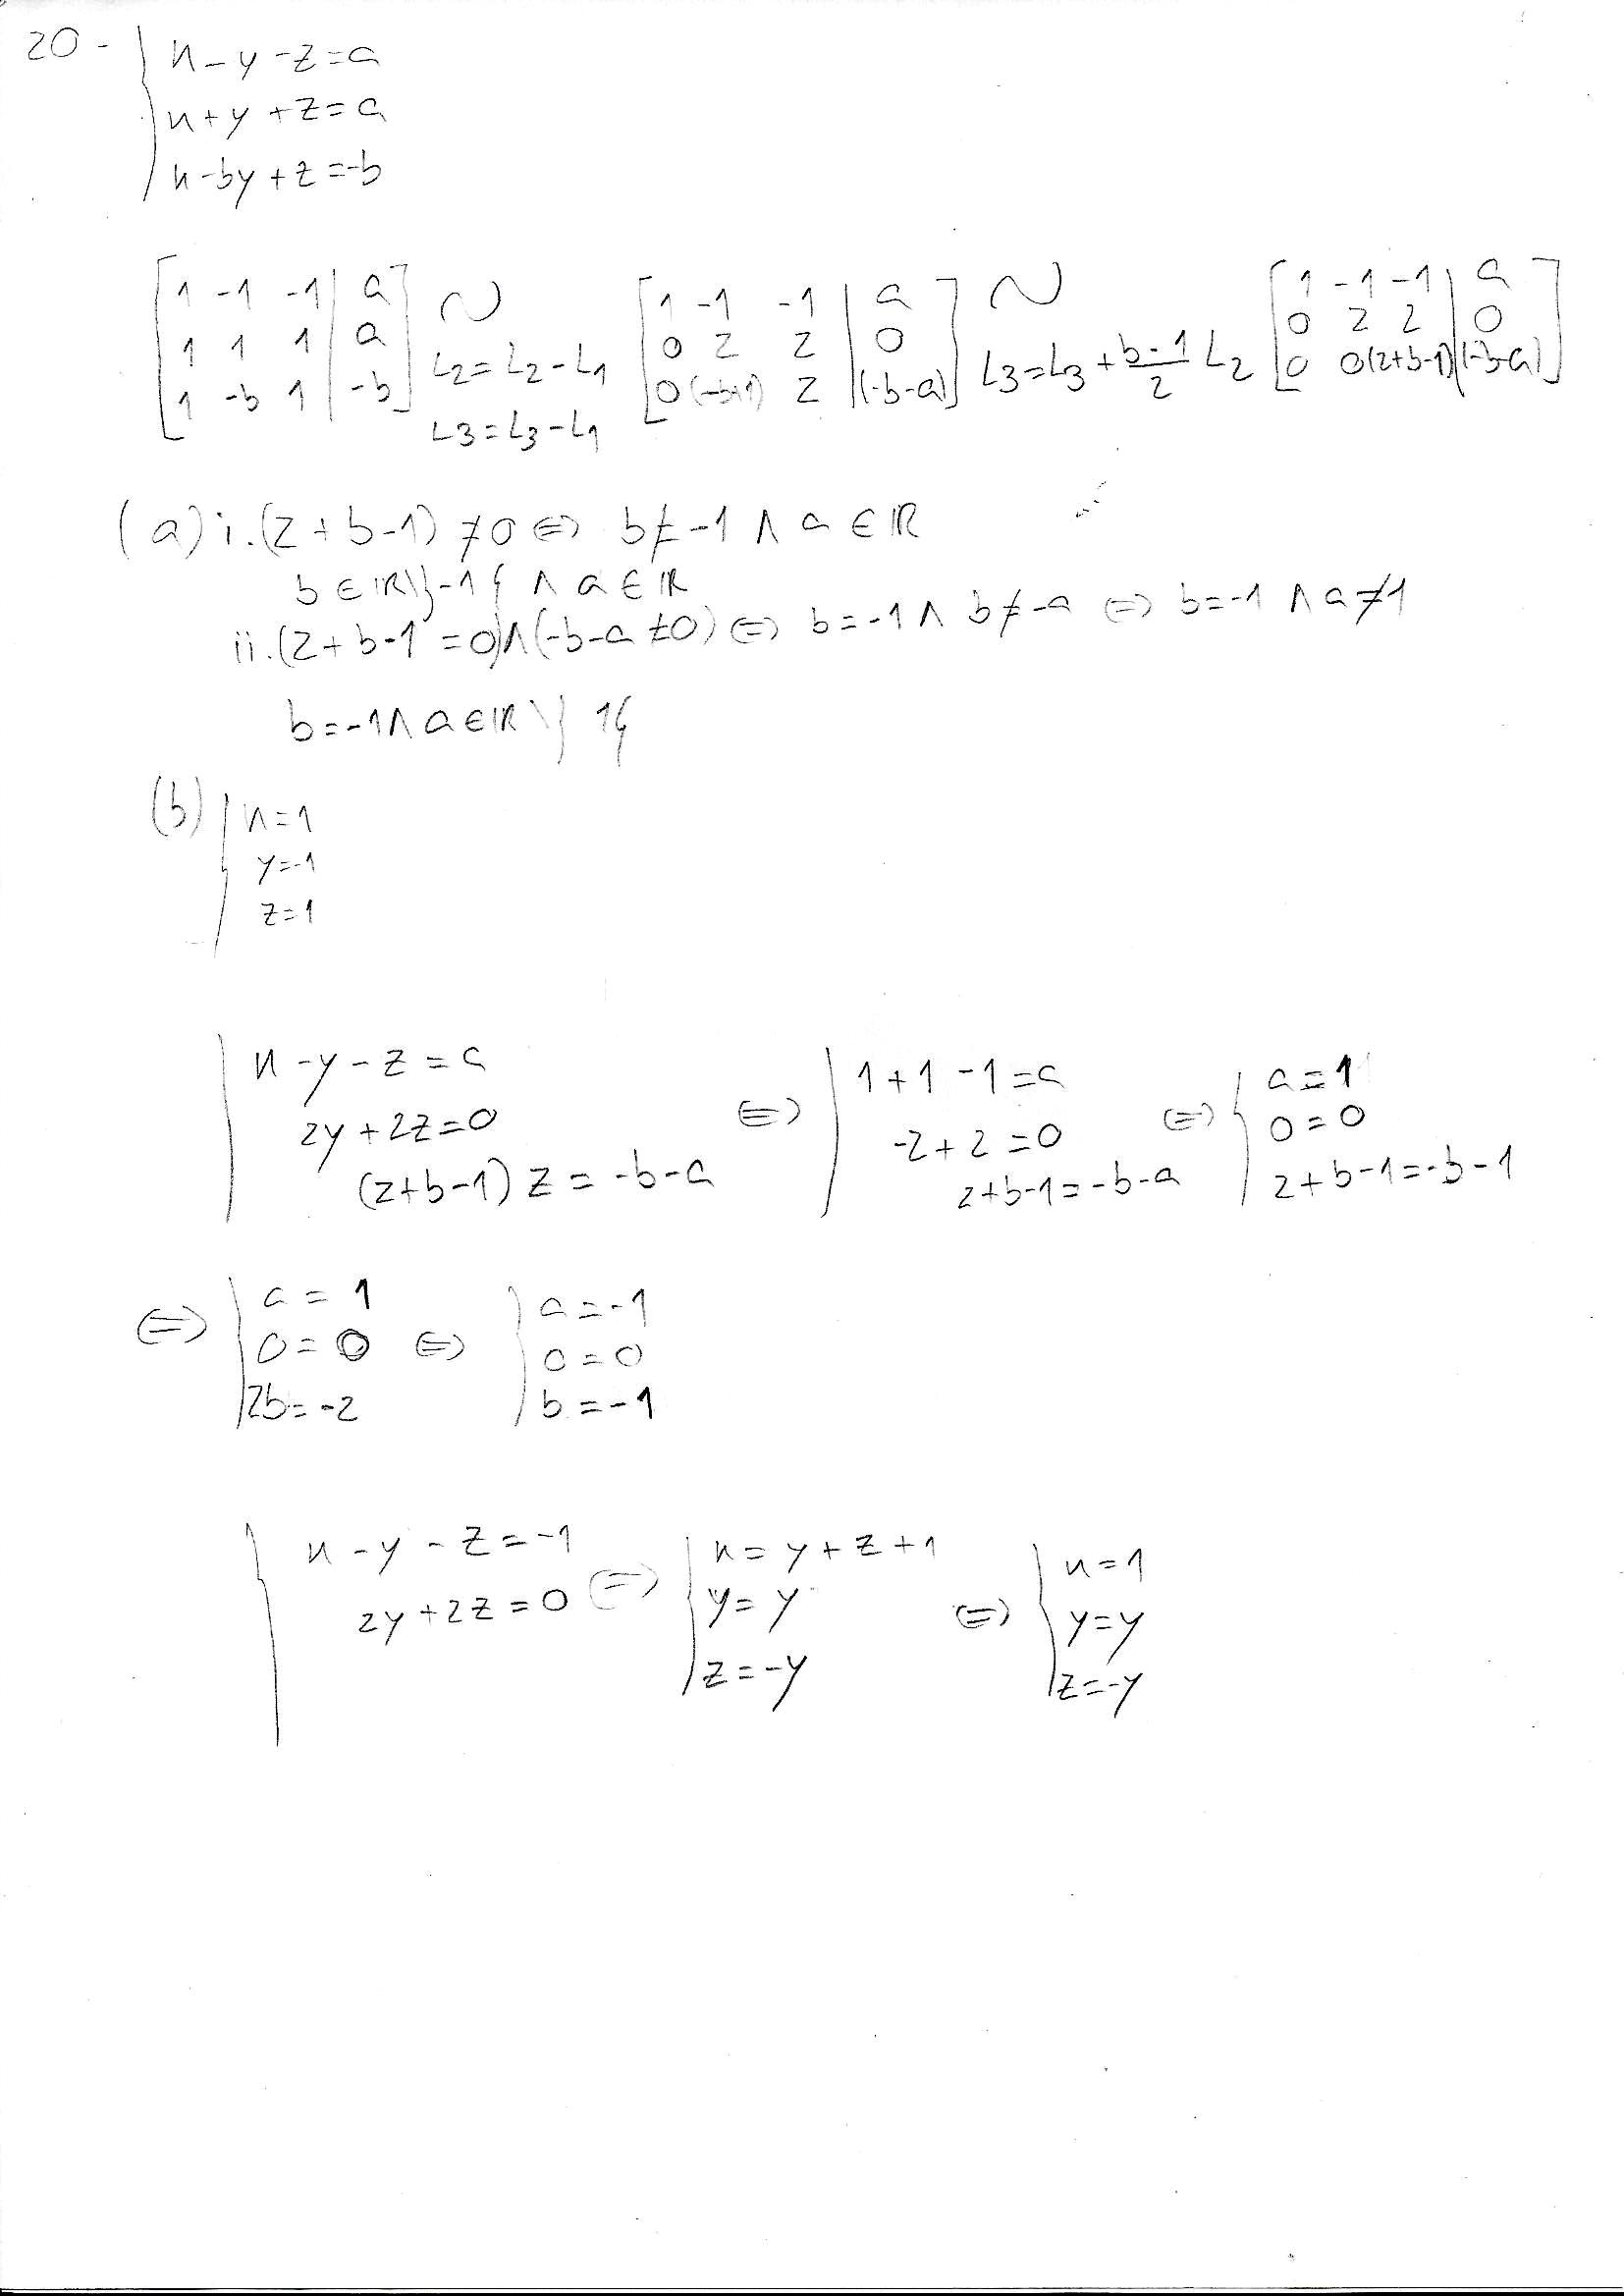 20 - { x - y - z = a
x + y + z = a
x - by + z = -b
[1 -1 -1 | a; 1 1 1 | a; 1 -b 1 | -b] ~ L2 = L2 - L1, L3 = L3 - L1 [1 -1 -1 | a; 0 2 2 | 0; 0 (-b+1) 2 | (-b-a)] ~ L3 = L3 + (b-1)/2 L2 [1 -1 -1 | a; 0 2 2 | 0; 0 0 (2+b-1) | (-b-a)]
(a) i. (2+b-1) ≠ 0 ⇔ b ≠ -1 ∧ a ∈ ℝ
b ∈ ℝ\}-1{ ∧ a ∈ ℝ
ii. (2+b-1 = 0) ∧ (-b-a ≠ 0) ⇔ b = -1 ∧ b ≠ -a ⇔ b = -1 ∧ a ≠ 1
b = -1 ∧ a ∈ ℝ \ } 1{
(b) { x = 1
y = -1
z = 1
{ x - y - z = a ⇔ { 1 + 1 - 1 = a ⇔ { a = 1
2y + 2z = 0 -2 + 2 = 0 0 = 0
(2+b-1) z = -b-a 2+b-1 = -b-a 2+b-1 = -b-1
⇔ { a = 1 ⇔ { a = -1
0 = 0 0 = 0
2b = -2 b = -1
{ x - y - z = -1 ⇔ { x = y + z + 1 ⇔ { x = 1
2y + 2z = 0 y = y y = y
z = -y z = -y